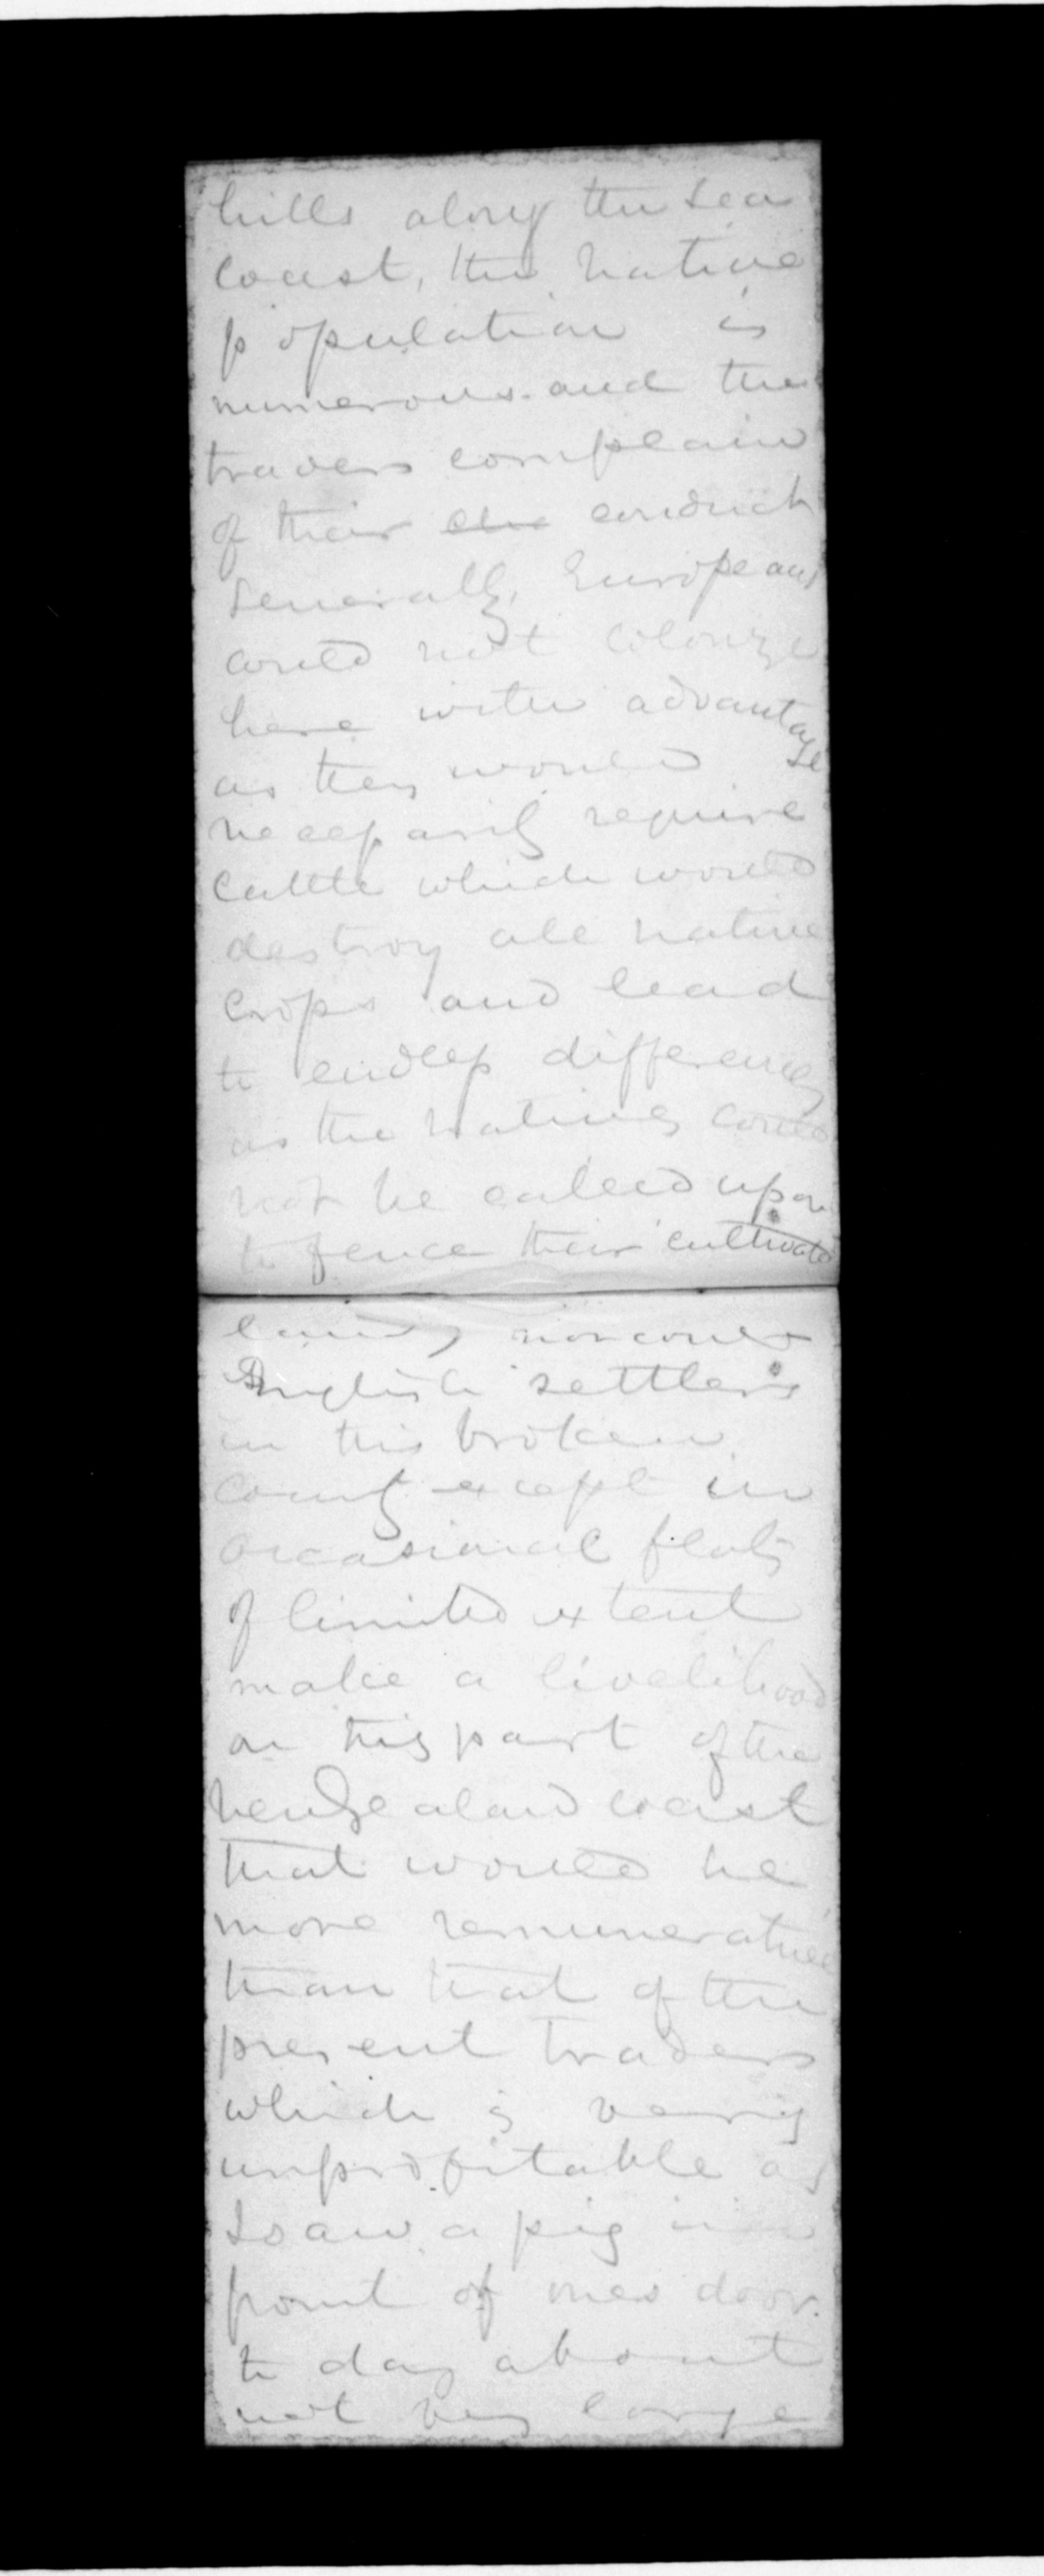 hills along the sea
coast, the native
population is
numerous. and the
traders complain
of their conduct
generally, Europeans
could not colonize
here with advantage
as they would
necessarily require
cattle which would
destroy all native
crops and lead
to endless differences
as the natives could
not be called upon
to fence their cultivated
land, nor could
English settlers
in this broken
county except in
occasional flats
of limited extent
make a livelihood
on this part of the
New Zealand coast
that would be
more remunerative
than that of the
present traders
which is very
unprofitable as
I saw a pig in
front of ones door.
to day about
not very large